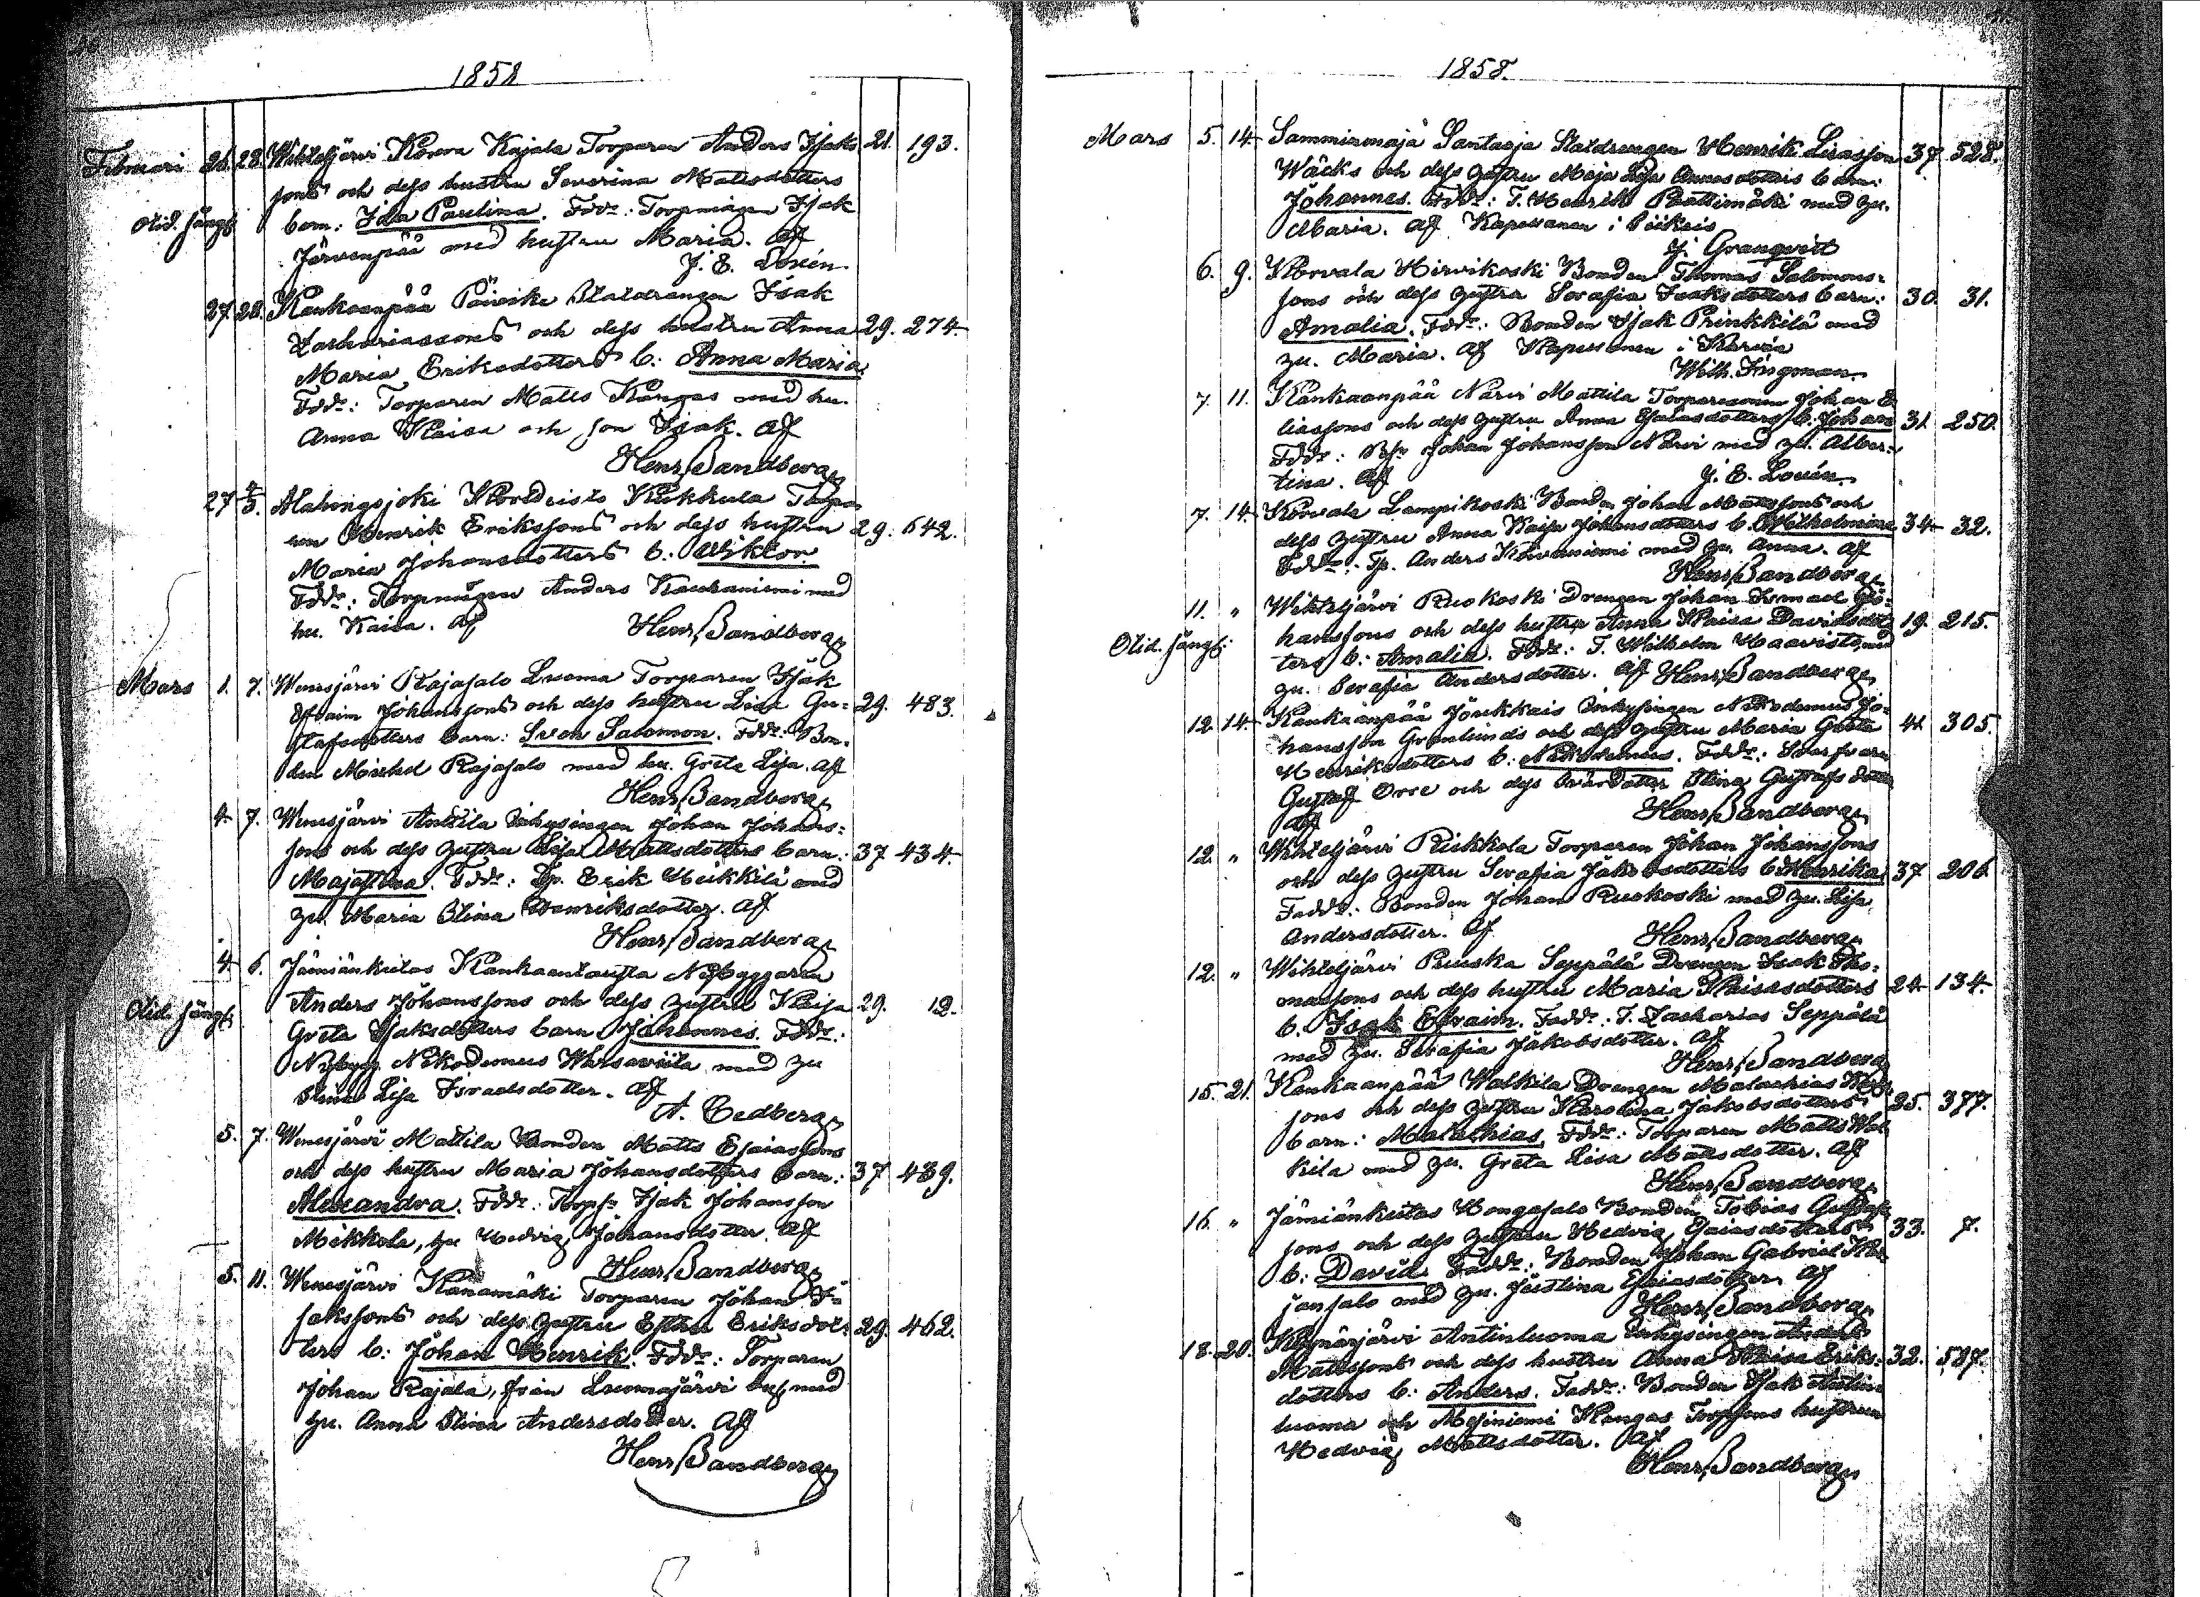 1858
Februari 26. 28. Wihteljärvi Korva Kajala Torparen Anders Isaks 21. 193.
sons och dess hustru Severina Mattsdotters
Olid. Jängf. barn: Ida Paulina. Fddr: Torpmågen Isak
Järvenpää med hustru Maria. Af
J. E. Lovén.
27. 28. Kankaanpää Päivike Statdrängen Isak
Zachariassons och dess hustru Anna 29. 274.
Maria Eriksdotters b: Anna Maria.
Fddr: Torparen Matts Kangas med hu.
Anna Kaisa och son Isak. Af
Henr. Sandberg
27 4/3. Alahongsjoki Kukkula
Henrik Erikssons och dess hustru 29. 642.
Maria Johansdotters b: Wiktor.
Fddr: Torpmågen Anders Kauhaniemi med
hu. Kaisa. Af Henr. Sandberg
Mars 1. 7. Wenesjärvi Rajasalo Luoma Torparen Isak
Efraim Johanssons och dess hustru Lisa Gu= 29. 483.
stafsdotters barn: Sven Salomon. Fddr: Bon=
den Michel Rajasalo med hu. Greta Lisa. Af
Henr. Sandberg
4. 7. Wenesjärvi Anttila Inhysingen Johan Johans=
sons och dess hustru Lisa Mattsdotters barn: 37 434.
Majastina. Fddr: Tp. Erik Heikkilä med
hu. Maria Stina Henriksdotter. Af
Henr. Sandberg
4. 6. Jämiänkeitas Kankaantausta Nybyggaren
Anders Johanssons och dess hustru Kaisa 29. 12.
Olid. Jängf. Greta Isaksdotters barn Johannes. Fddr:
Nybygg. Nikodemus Warsaviita med hu
Stina Lisa Israelsdotter. Af
A. Cedberg
5. 7. Wenesjärvi Mattila Bonden Matts Esaiassons
och dess hustru Maria Johansdotters barn: 37 439.
Alexandra. Fddr: Torps: Isak Johansson
Mikkola, hu Hedvig Johansdotter. Af
Henr. Sandberg
5. 11. Wenesjärvi Kanamäki Torparen Johan I=
sakssons och dess hustru Esther Eriksdot= 29. 462.
ters b: Johan Henrik. Fddr: Torparen
Johan Rajala, från Luomajärvi med
hu. Anna Stina Andersdotter. Af
Henr. Sandberg
1858.
Mars 5. 14. Samminmaja Santaoja Statdrengen Henrik Lisasson 37. 528.
Wäcks och dess hustru Maja Lisa Annasdotters barn:
Johannes. Fddr: T. Henrik Rättimäki med hu.
Maria. Af Kapellanen i Piikkis
J. Granqvist
6. 9. Korvala Hirvikoski Bonden Thomas Salomons=
sons och dess hustru Serafia Isaksdotters barn: 30. 31.
Amalia. Fddr: Bonden Isak Prinkkilä med
hu. Maria. Af Kapellanen i Karvia
Wilh. Ingman.
7. 11. Kankaanpää Närvi Mattila Torparesonen Johan E=
liassons och dess hustru Anna Esaiasdotters b: Johan 31. 250.
Fddr: Johan Johansson Närvi med hu. Alber=
tina. Af J. E. Lovén.
7. 14. Korvala Lampikoski Bonden Johan Matssons och
dess hustru Anna Kaisa Johansdotters b. Wilhelmina 34. 32.
Fddr: Tp. Anders Kivuniemi med hu. Anna. Af
Henr. Sandberg
11. " Wihteljärvi Ruokoski Drengen Johan Ismael Jo=
hanssons och dess hustru Anna Kaisa Davidsdot= 19. 215.
Olid. Jängf. ters b: Amalia. Fddr: T. Wilhelm Haavisto med
hu. Serafia Andersdotter. Af Henr. Sandberg
12. 14. Kankaanpää Jyrikkais Inhysingen Nikodemus Jo=
hansson Grönlunds och dess hustru Maria Greta 41 305.
Henriksdotters b: Nikodemus. Fddr:
Gustaf Orre och dess Stina Gustafsdotter
Af Henr. Sandberg
12. " Wihteljärvi Riekkola Torparen Johan Johanssons
och dess hustru Serafia Jakobsdotters b: Henrika 37. 206.
Faddr: Bonden Johan Ruokoski med hu. Lisa
Andersdotter. Af Henr. Sandberg
12. " Wihteljärvi Seppälä Drengen Isak Tho=
massons och dess hustru Maria Kaisasdotters 24. 134.
b. Isak Efraim. Faddr: T. Zacharias Seppälä
med hu. Serafia Jakobsdotter. Af
Henr. Sandberg
15. 21. Kankaanpää Walkila Drengen Malachias
sons och dess hustru Karolina Jakobsdotters 25. 377.
barn: Malachias. Fddr: Torparen Matts Wal=
kila med hu. Greta Lisa Mattsdotter. Af
Henr. Sandberg
16. " Jämiänkeitas Hongasalo Bonden Tobias Gustafs
sons och dess hustru Hedvig Esaiasdotters 33. 7.
b: David. Faddr: Bonden Johan Gabriel
jansalo med hu. Justina Esaiasdotter. Af
Henr. Sandberg
18. 20. Kynäsjärvi Antinluoma Inhysingen Anders
Matssons och dess hustru Anna Kaisa Eriks= 32. 587.
dotters b: Anders. Faddr: Bonden Isak Antin
luoma och Niiniemi Kangas Torpsons hustrun
Hedvig Mattsdotter. Af
Henr. Sandberg